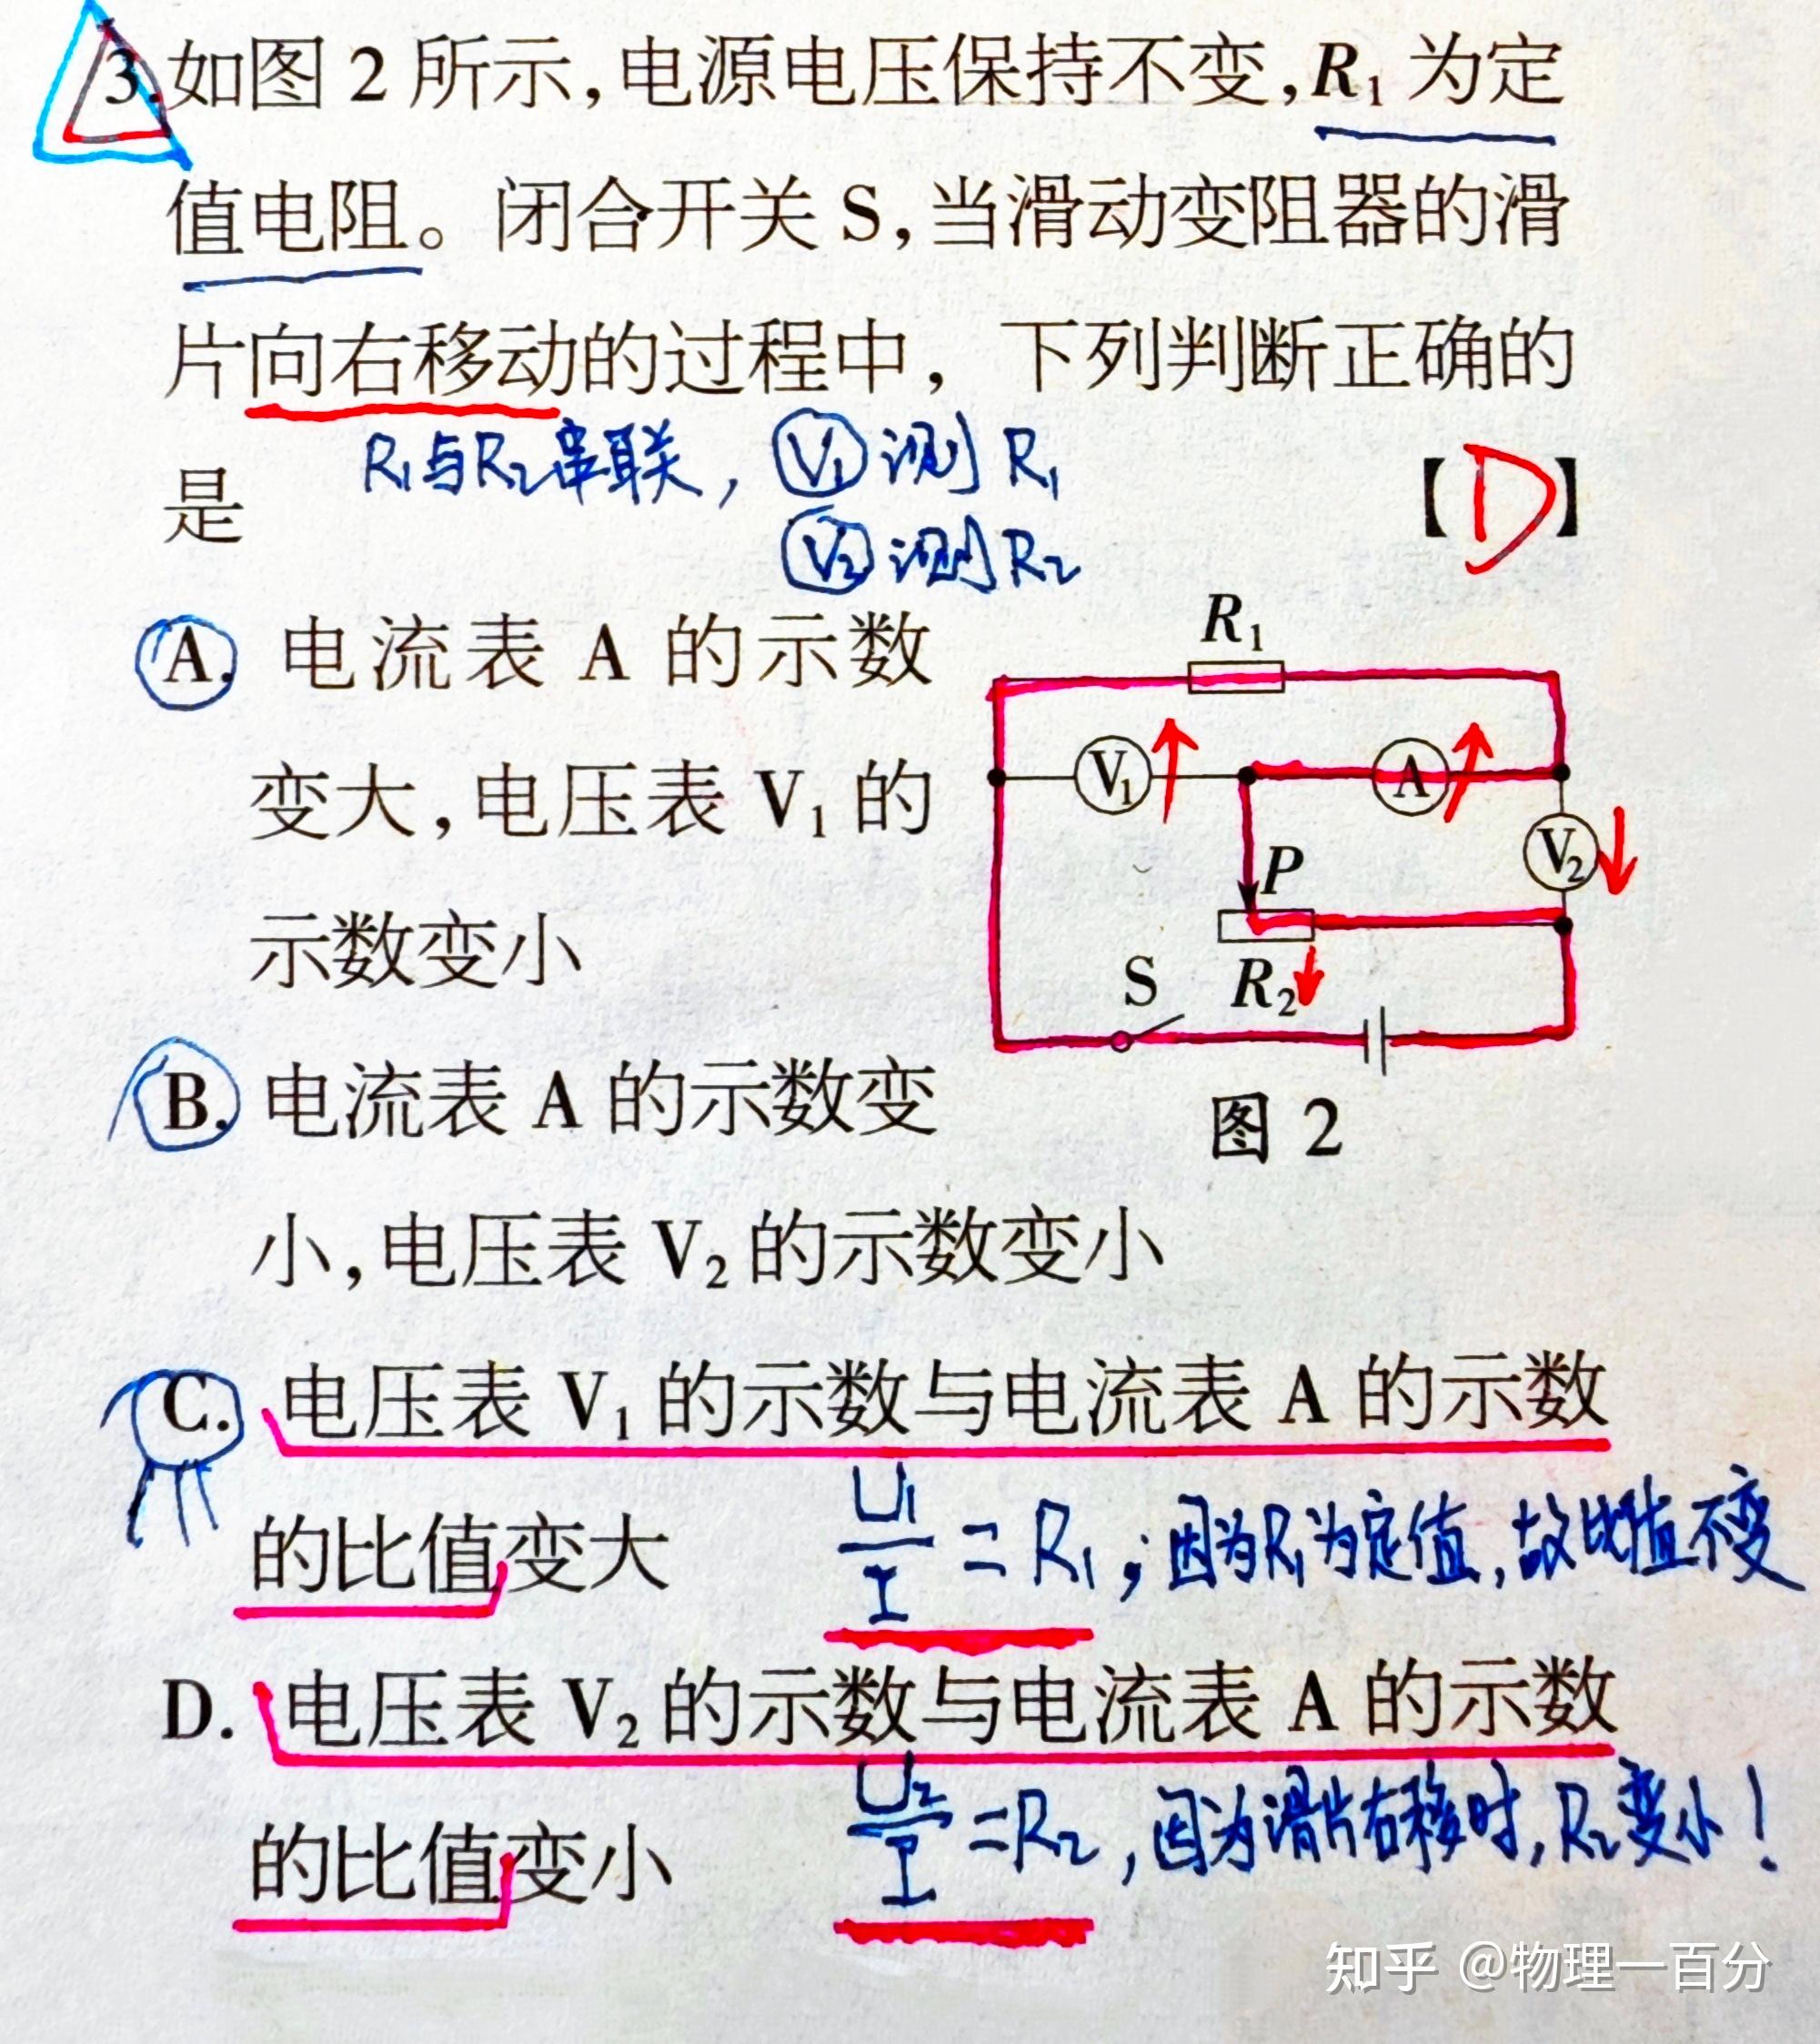 3.如图 2 所示,电源电压保持不变,R₁ 为定
值电阻。闭合开关 S,当滑动变阻器的滑
片向右移动的过程中,下列判断正确的
是 【D】
R₁与R₂串联, V₁ 测 R₁
V₂ 测 R₂
A. 电流表 A 的示数
变大,电压表 V₁ 的
示数变小
R₁
V₁ A
V₂
P
S R₂
图 2
B. 电流表 A 的示数变
小,电压表 V₂ 的示数变小
C. 电压表 V₁ 的示数与电流表 A 的示数
的比值变大
U₁/I = R₁;因为R₁为定值,故比值不变
D. 电压表 V₂ 的示数与电流表 A 的示数
的比值变小
U₂/I =R₂,因为滑片右移时,R₂变小!
知乎 @物理一百分